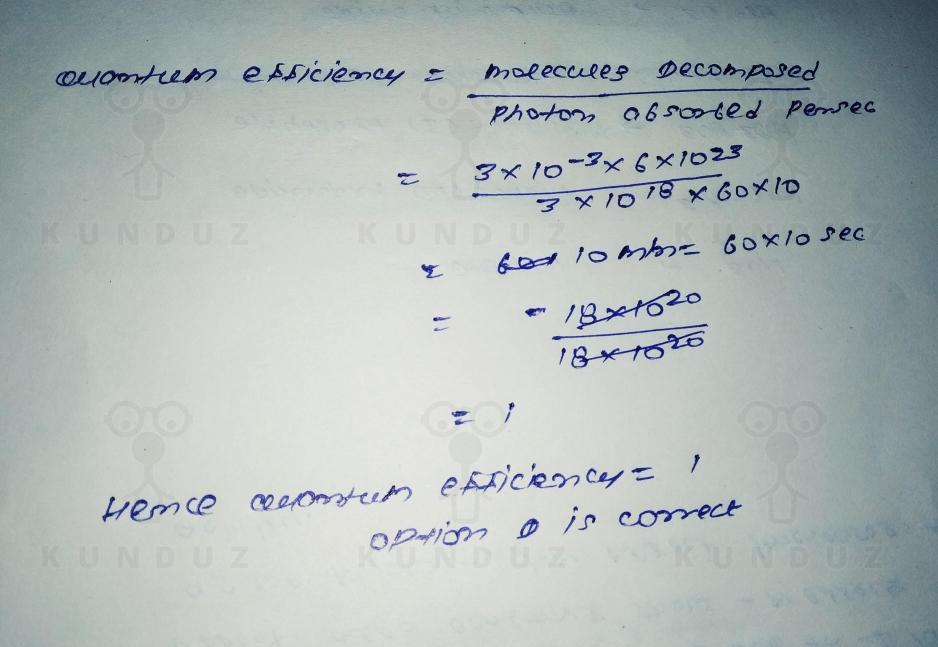 Quantum efficiency = molecules Decomposed
Photon absorbed Persec
= 3×10⁻³×6×10²³
3×10¹⁸×60×10
= 10 min= 60×10 sec
= 18×10²⁰
18×10²⁰
= 1
KUNDUZ KUNDUZ KUNDUZ
Hence quantum efficiency= 1
option D is correct
KUNDUZ KUNDUZ KUNDUZ